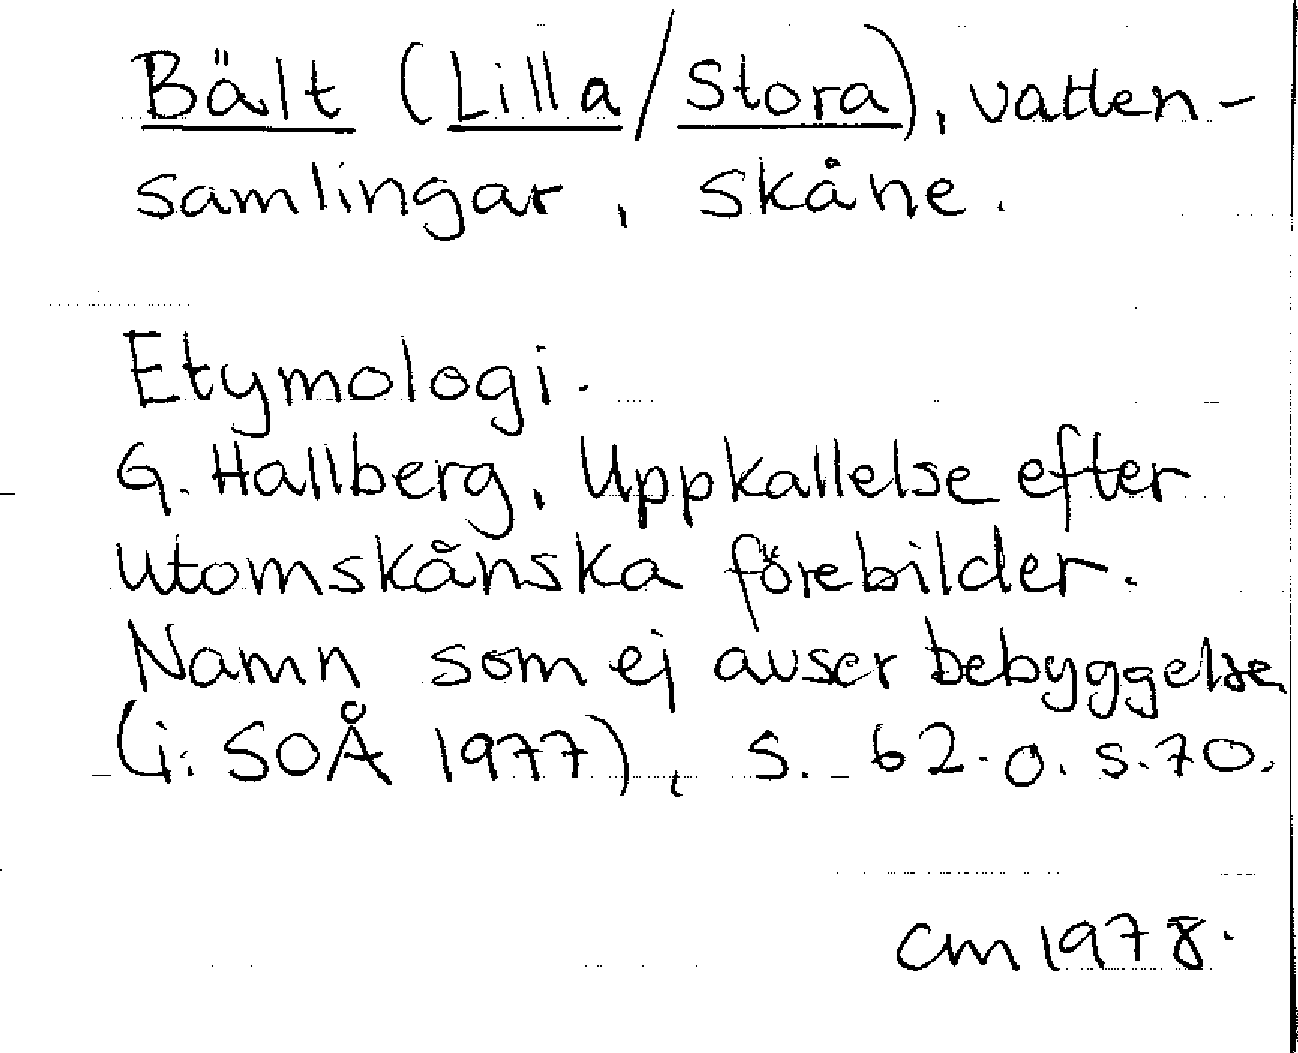 Bält (Lilla/Stora), vatten-
samlingar, Skåne.
Etymologi.
G. Hallberg, Uppkallelse efter
utomskånska förebilder.
Namn som ej avser bebyggelse
(i: SOÅ 1977), s. 62. o. s. 70.
CM 1978.